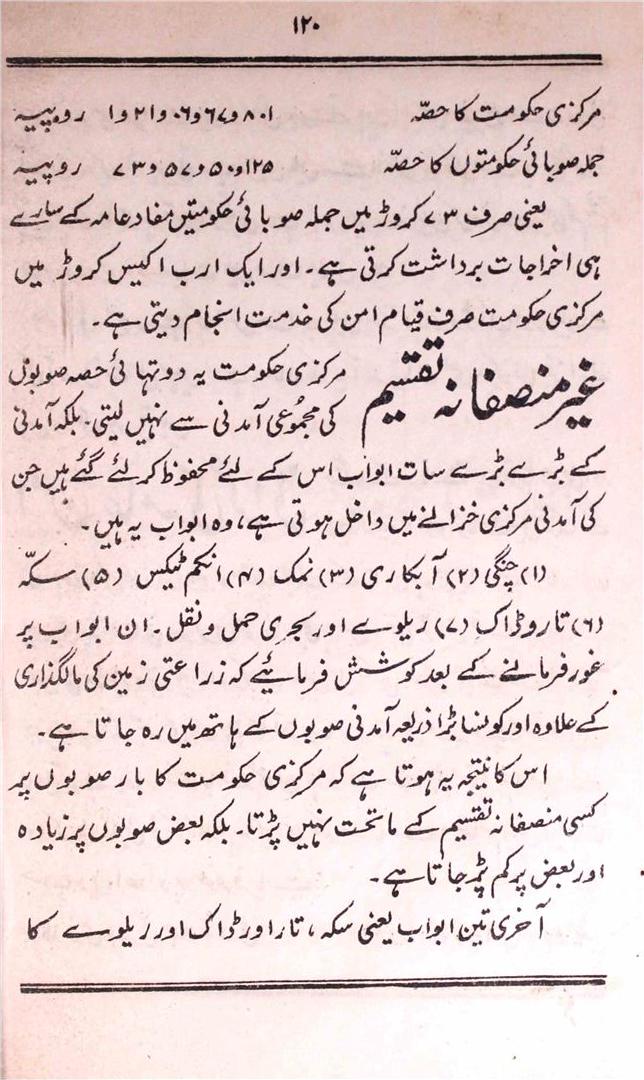 ۱۲۰
مرکزی حکومت کا حصّہ ۸۰۱و۶۷و۰۶و۲۱و۱ روپیہ
جملہ صوبائی حکومتوں کا حصّہ ۱۲۵و۵۰و۵۷و۷۳ روپیہ
یعنی صرف ۷۳ کروڑ میں جملہ صوبائی حکومتیں مفاد عامہ کے سارے
ہی اخراجات برداشت کرتی ہے۔ اور ایک ارب اکیس کروڑ میں
مرکزی حکومت صرف قیام امن کی خدمت انجام دیتی ہے۔
غیر منصفانہ تقسیم
مرکزی حکومت یہ دو تہائی حصہ صوبوں
کی مجموعی آمدنی سے نہیں لیتی۔ بلکہ آمدنی
کے بڑے بڑے سات ابواب اس کے لئے محفوظ کر لئے گئے ہیں جن
کی آمدنی مرکزی خزانے میں داخل ہوتی ہے، وہ ابواب یہ ہیں۔
(۱) چنگی (۲) آبکاری (۳) نمک (۴) انکم ٹیکس (۵) سکّہ
(۶) تار و ڈاک (۷) ریلوے اور بحری حمل و نقل۔ ان ابواب پر
غور فرمانے کے بعد کوشش فرمائیے کہ زراعتی زمین کی مالگذاری
کے علاوہ اور کونسا بڑا ذریعہ آمدنی صوبوں کے ہاتھ میں رہ جاتا ہے۔
اس کا نتیجہ یہ ہوتا ہے کہ مرکزی حکومت کا بار صوبوں پر
کسی منصفانہ تقسیم کے ماتحت نہیں پڑتا۔ بلکہ بعض صوبوں پر زیادہ
اور بعض پر کم پڑ جاتا ہے۔
آخری تین ابواب یعنی سکہ، تار اور ڈاک اور ریلوے کا